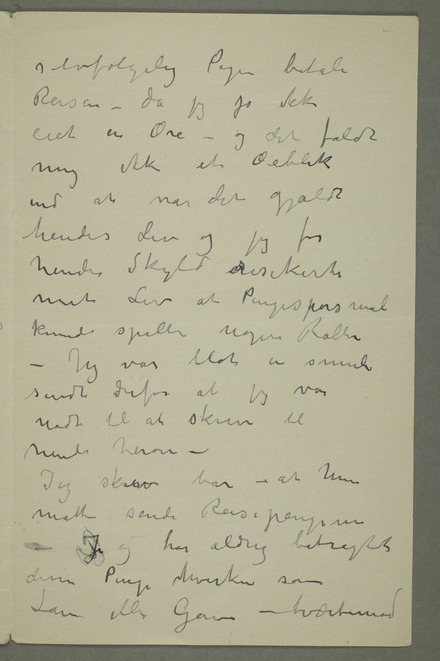 selvfølgelig Pegen betale
Reisen – da jeg jo ikke
eiet en Øre – og det faldt
mig ikke et Øieblik
ind at når det gjaldt
hendes Liv og jeg for
hendes Skyld risikerte
mit Liv at Pengespørsmål
kunde spille nogen Rolle
– Jeg var blot en smule
sendt derfor at jeg var
nødt til at skrive til
hende herom –
Jeg skrev bar – at hun
måtte sende Reisepengene
– Jeg har aldrig betragtet
disse Penge hverken som
Lån eller Gave – tværtimod